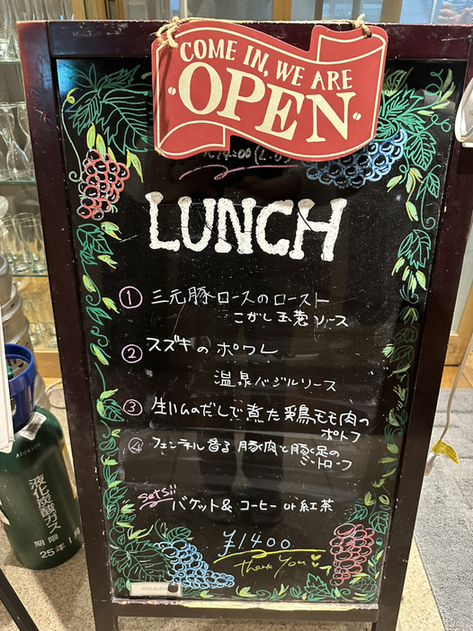 COME IN, WE ARE
OPEN
LUNCH
① 三元豚ロースのロースト
こがし玉葱ソース
② スズキのポワレ
温泉バジルソース
③ 生ハムのだしで煮た鶏モモ肉の
ポトフ
④ フェンネル香る豚肉と豚足の
set
バゲット& コーヒー or 紅茶
¥1400
thank you
液化炭酸ガス
期限
25年